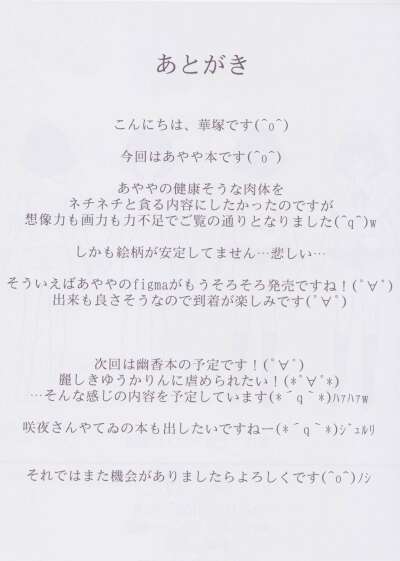 あとがき
こんにちは、華塚です(^o^)
今回はあやや本です(^o^)
あややの健康そうな肉体を
ネチネチと貪る内容にしたかったのですが
想像力も画力も力不足でご覧の通りとなりました(^q^)w
しかも絵柄が安定してません…悲しい…
そういえばあややのfigmaがもうそろそろ発売ですね！(ﾟ∀ﾟ)
出来も良さそうなので到着が楽しみです(ﾟ∀ﾟ)
次回は幽香本の予定です！(ﾟ∀ﾟ)
麗しきゆうかりんに虐められたい！(*ﾟ∀ﾟ*)
…そんな感じの内容を予定しています(*´q｀*)ﾊｧﾊｧw
咲夜さんやてゐの本も出したいですねー(*´q｀*)ｼﾞｭﾙﾘ
それではまた機会がありましたらよろしくです(^o^)ﾉｼ